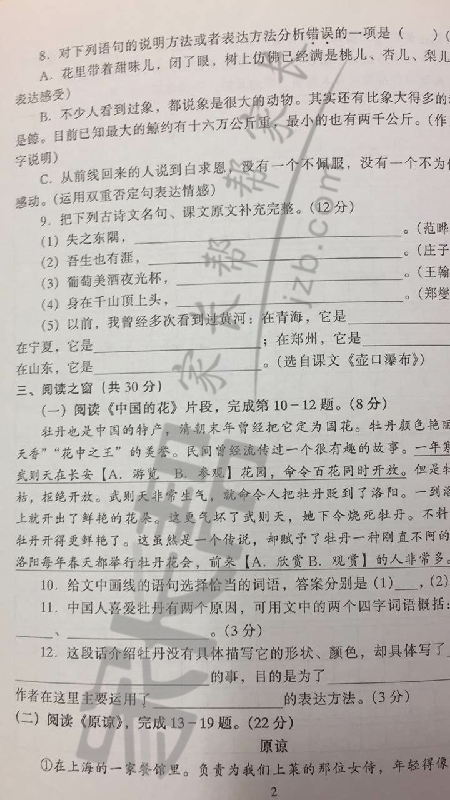 8. 对下列语句的说明方法或者表达方法分析错误的一项是（ ）（
A. 花里带着甜味儿，闭了眼，树上仿佛已经满是桃儿、杏儿、梨儿
表达感受）
B. 不少人看到过象，都说象是很大的动物。其实还有比象大得多的
是鲸。目前已知最大的鲸约有十六万公斤重，最小的也有两千公斤。（作
字说明）
C. 从前线回来的人说到白求恩，没有一个不佩服，没有一个不为
感动。（运用双重否定句表达情感）
9. 把下列古诗文名句、课文原文补充完整。（12 分）
（1）失之东隅，。（范晔
（2）吾生也有涯，。（庄子
（3）葡萄美酒夜光杯，。（王翰
（4）身在千山顶上头，。（郑燮
（5）以前，我曾经多次看到过黄河：在青海，它是
在宁夏，它是；在郑州，它是
在山东，它是。（选自课文《壶口瀑布》）
三、阅读之窗（共 30 分）
（一）阅读《中国的花》片段，完成第 10－12 题。（8 分）
牡丹也是中国的特产，清朝末年曾经把它定为国花。牡丹颜色艳
天香”“花中之王”的美誉。民间曾经流传过一个很有趣的故事。一年寒
武则天在长安【A．游览 B．参观】花园，命令百花同时开放。但是牡
枯，拒绝开放。武则天非常生气，就命令人把牡丹贬到了洛阳。一到洛
上就开出了鲜艳的花朵。这更气坏了武则天，她下令烧死牡丹。不料
牡丹开得更鲜艳了。这虽然是一个传说，却赋予了牡丹一种刚直不阿的
洛阳每年春天都举行牡丹花会，前来【A．欣赏 B．观赏】的人非常多。
10. 给文中画线的语句选择恰当的词语，答案分别是（1）___，（2）
11. 中国人喜爱牡丹有两个原因，可用文中的两个四字词语概括：
、。（3 分）
12. 这段话介绍牡丹没有具体描写它的形状、颜色，却具体写了
的事，目的是为了
作者在这里主要运用了的表达方法。（3 分）
（二）阅读《原谅》，完成 13－19 题。（22 分）
原谅
①在上海的一家餐馆里。负责为我们上菜的那位女侍，年轻得像
2
家长帮
家长帮
jzb.com